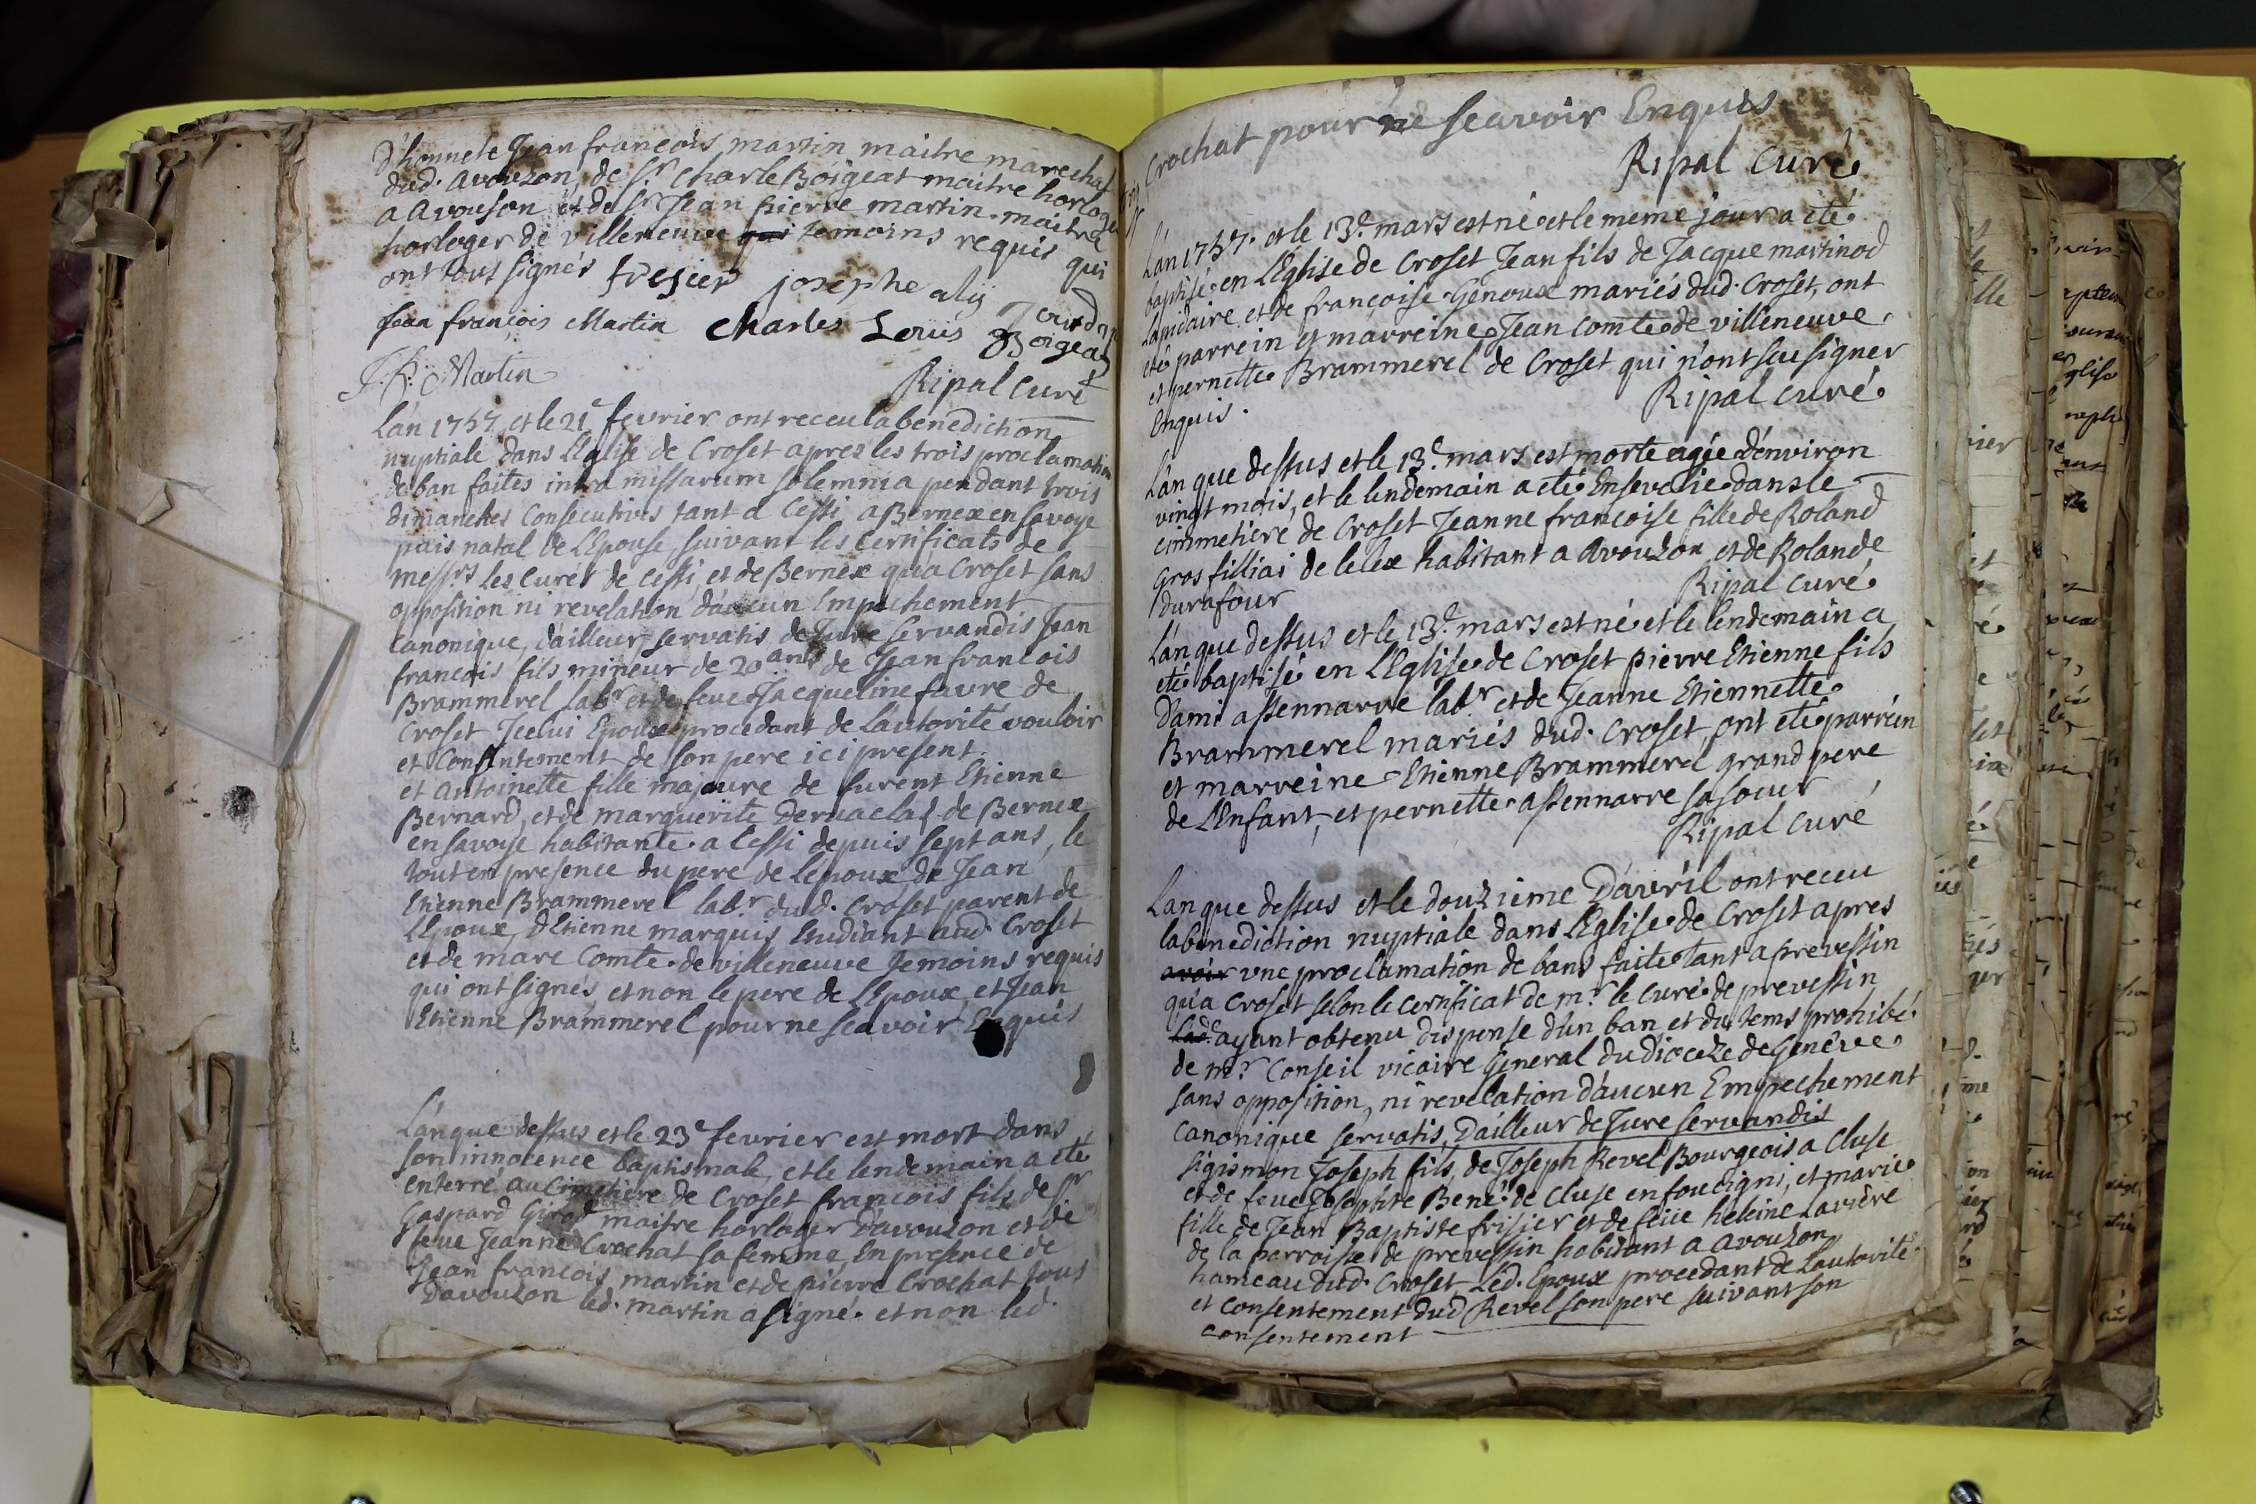 d'honnete Jean francois martin maitre marechal
dud. avouzon, de Sr Charle Boigeat maitre horloger
a avouson et de Sr Jean pierre martin maitre
horloger de villeneuve qui temoins requis qui
ont tous signés fresier josephe aly
Jean francois Martin Charles Louis Boigeat
J. P. Martin
Ripal curé
L'an 1757 et le 21e fevrier ont receu la benediction
nuptiale dans L'Eglise de Croset apres les trois proclamation
de ban faites intra missarum solemnia pendant trois
dimanches consecutives tant a Cessi a Bernex en savoye
pais natal de L'Epouse, suivant les certificats de
messrs les curés de Cessi et de Bernex qu'a Croset sans
opposition ni revelation d'aucun Empechement
canonique, d'ailleur servatis de Jure servandis Jean
francois fils mineur de 20 ans de Jean francois
Brammerel labr et de feue Jacqueline favre de
Croset Icelui Epoux procedant de L'autorité vouloir
et consentement de son pere ici present
et antoinette fille majeure de furent Etienne
Bernard, et de marguerite de Bernex
en savoye habitante a Cessi depuis sept ans, le
tout en presence du pere de L'epoux de Jean
Etienne Brammerel labr dud. Croset parent de
L'Epoux, d'Etienne marquis Etudiant aud. Croset
et de marc Comte de villeneuve temoins requis
qui ont signés, et non le pere de L'Epoux, et Jean
Etienne Brammerel pour ne scavoir Enquis
L'an que dessus et le 23e fevrier est mort dans
son innocence baptismale, et le lendemain a eté
enterré au cimetiere de Croset francois fils de Sr
Gaspard Girod maitre horloger d'avouzon et de
feue Jeanne Crochat sa femme, En presence de
Jean francois martin et de pierre Crochat tous
d'avouzon led. martin a signé et non led.
Crochat pour ne scavoir Enquis
Ripal curé
L'an 1757. et le 13e mars est né et le meme jour a eté
baptisé en L'Eglise de Croset Jean fils de Jacque martinod
lapidaire et de françoise Genoux mariés dud. Croset, ont
eté parrein et marreine Jean Comte de villeneuve
et pernette Brammerel de Croset qui n'ont sceu signer
Enquis.
Ripal curé
L'an que dessus et le 13e mars est morte agée d'environ
vingt mois, et le lendemain a eté Ensevelie dans le
cimmetiere de Croset Jeanne francoise fille de Roland
Grosfilliai de lelex habitant a avouzon et de Rolande
durafour
Ripal curé
L'an que dessus et le 13e mars est né et le lendemain a
eté baptisé en L'Eglise de Croset pierre Etienne fils
d'ami assennarre labr et de Jeanne Etiennette
Brammerel mariés dud. Croset, ont eté parrein
et marreine Etienne Brammerel grand pere
de L'Enfant, et pernette assennarre sa soeur
Ripal curé
L'an que dessus et le douzieme D'avril ont receu
la benediction nuptiale dans L'Eglise de Croset apres
avoir une proclamation de bans faite tant a prevessin
qu'a Croset selon le certificat de mr le curé de prevessin
Lad. ayant obtenu dispense d'un ban et du tems prohibé
de mr Conseil vicaire General du dioceze de Genève
sans opposition, ni revelation d'aucun Empechement
canonique servatis D'ailleur de Jure servandis
sigismon Joseph fils de Joseph Revel Bourgeois a Cluse
et de feue Josephte Bene de Cluse en foucigni, et marie
fille de Jean Baptiste frisier et de feüe heleine Lavière
de la parroisse de prevessin habitant a avouzon
hameau dud. Croset, Led. Epoux procedant de L'autorité
et consentement dud Revel son pere suivant son
consentement